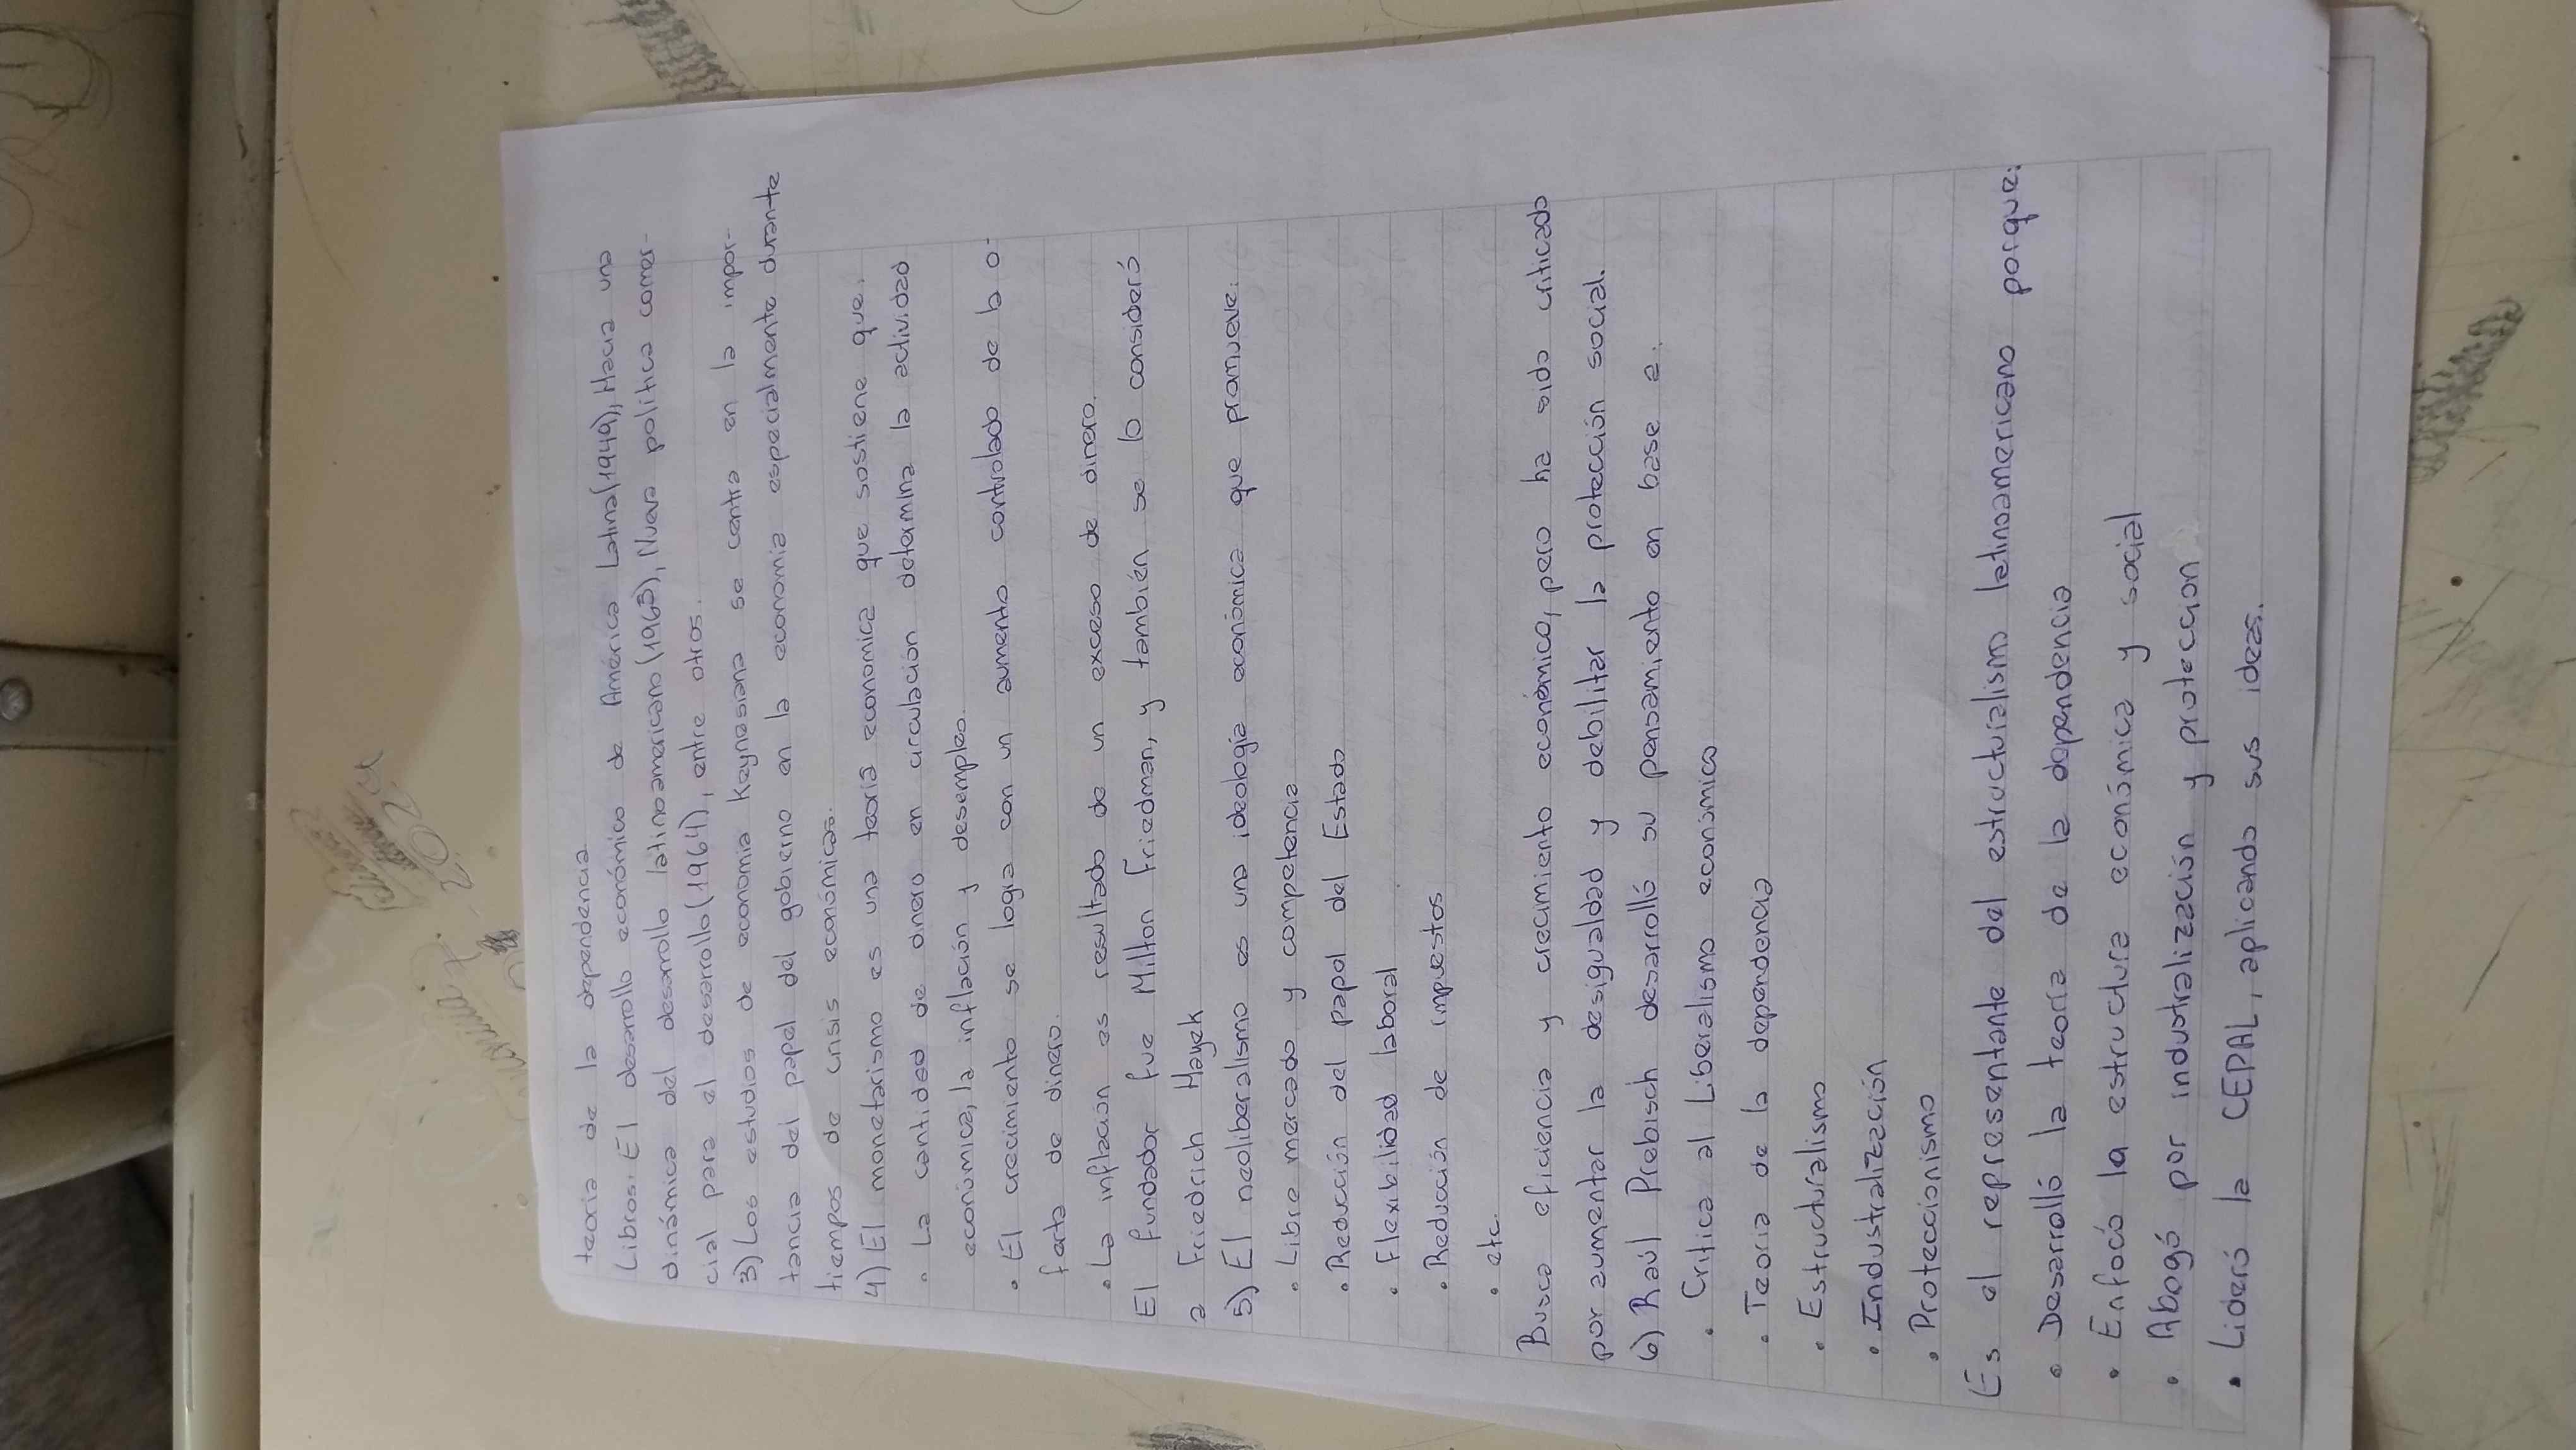 teoria de la dependencia
Libros: El desarrollo económico de América Latina (1949), Hacia una
dinámica del desarrollo latinoamericano (1963), Nueva política comer-
cial para el desarrollo (1964), entre otros.
3) Los estudios de economia Keynesiana se centra en la impor-
tancia del papel del gobierno en la economia especialmente durante
tiempos de crisis económicas.
4) El monetarismo es una teoria economica que sostiene que:
• La cantidad de dinero en circulación determina la actividad
económica, la inflación y desempleo.
• El crecimiento se logra con un aumento controlado de la o-
ferta de dinero.
• La inflación es resultado de un exceso de dinero.
El fundador fue Milton Friedman, y también se lo consideró
a Friedrich Hayek
5) El neoliberalismo es una ideologia económica que promueve:
• Libre mercado y competencia
• Reducción del papel del Estado
• Flexibilidad laboral
• Reducción de impuestos
• etc.
Busca eficiencia y crecimiento económico, pero ha sido criticado
por aumentar la desigualdad y debilitar la protección social.
6) Raúl Prebisch desarrolló su pensamiento en base a:
• Critica al Liberalismo económico
• Teoria de la dependencia
• Estructuralismo
• Industralización
• Proteccionismo
Es el representante del estructuralismo latinoamericano porque:
• Desarrolló la teoría de la dependencia
• Enfocó la estructura económica y social
• Abogó por industralización y proteccion
• Lideró la CEPAL, aplicando sus ideas.